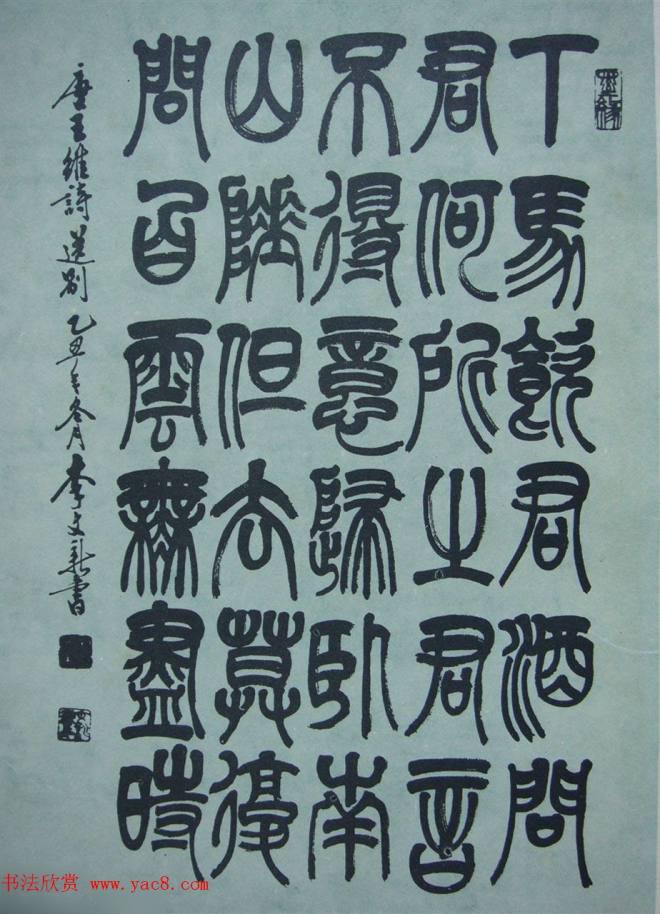 墨緣
下馬飲君酒問
君何所之君言
不得意歸臥南
山陲但去莫復
問白雲無盡時
唐王維詩送別乙丑年冬月李文新書
书法欣赏 www.yac8.com